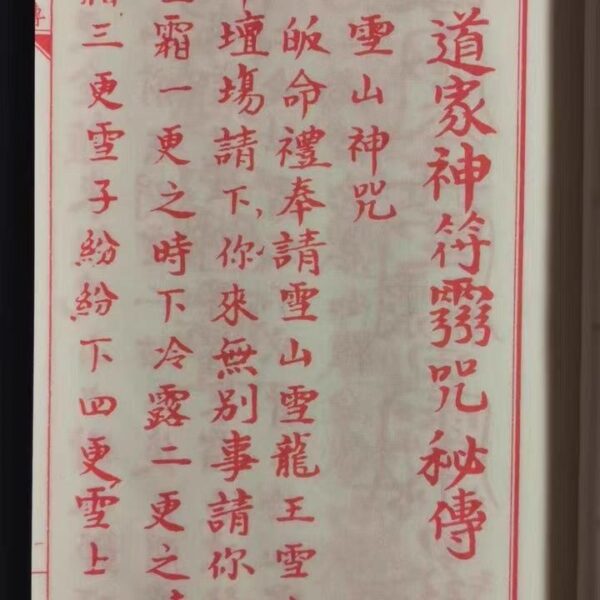 道家神符咒秘傳
雪山神咒
皈命禮奉請雪山雪龍王雪
壇塲請下你來無別事請你
霜一更之時下冷露二更之
三更雪子紛紛下四更雪上